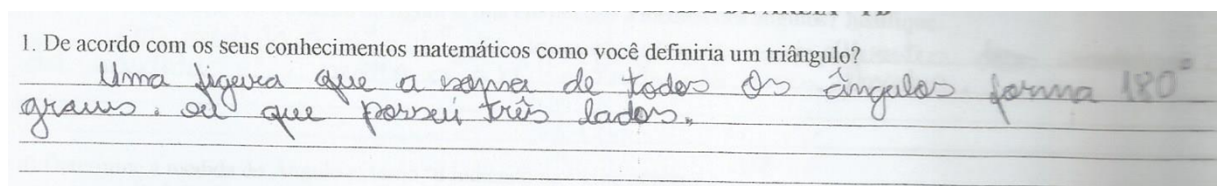 1. De acordo com os seus conhecimentos matemáticos como você definiria um triângulo?
Uma figura que a soma de todos os ângulos forma 180°
graus. ou que possui três lados.